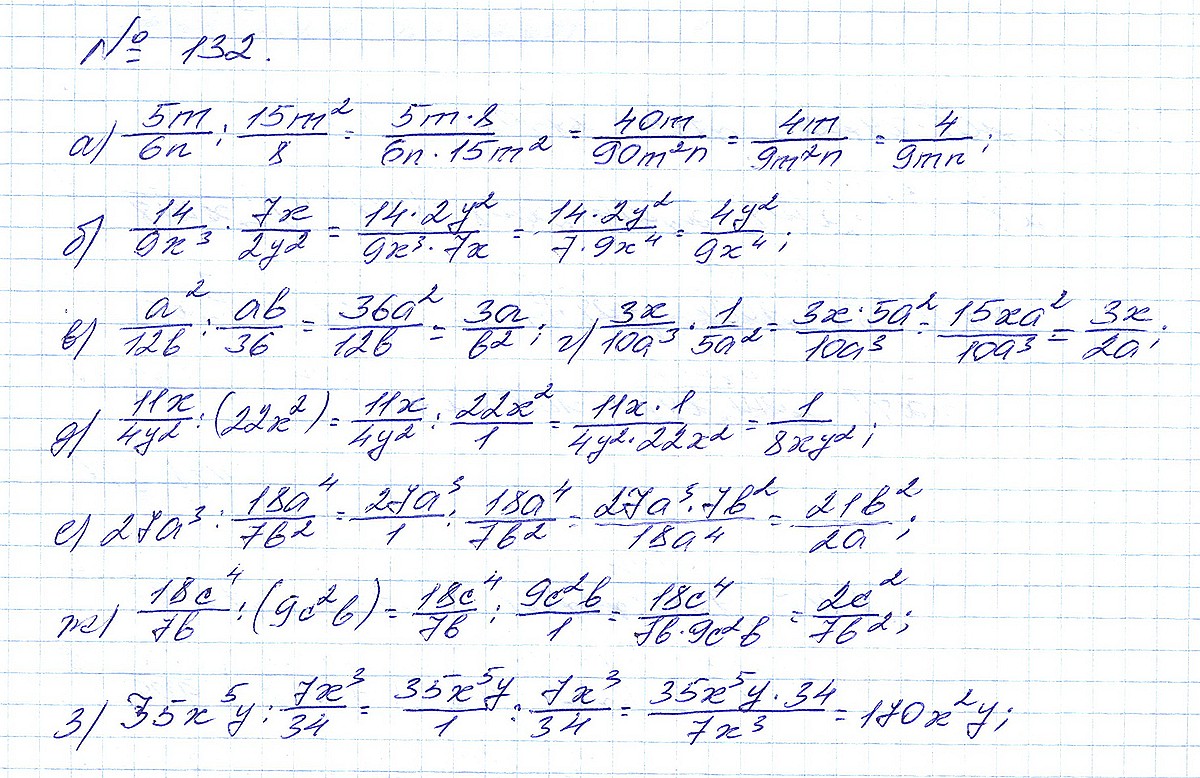 № 132.
а) 5m/6n : 15m²/8 = 5m·8/6n·15m² = 40m/90m²n = 4m/9m²n = 4/9mn;
б) 14/9x³ : 7x/2y² = 14·2y²/9x³·7x = 14·2y²/7·9x⁴ = 4y²/9x⁴;
в) a²/12b : ab/36 = 36a²/12b = 3a/b²; г) 3x/10a³ : 1/5a² = 3x·5a²/10a³ = 15xa²/10a³ = 3x/2a;
д) 11x/4y² : (22x²) = 11x/4y² : 22x²/1 = 11x·1/4y²·22x² = 1/8xy²;
е) 27a³ : 18a⁴/7b² = 27a³/1 : 18a⁴/7b² = 27a³·7b²/18a⁴ = 21b²/2a;
ж) 18c⁴/7b : (9c²b) = 18c⁴/7b : 9c²b/1 = 18c⁴/7b·9c²b = 2c²/7b²;
з) 35x⁵y : 7x³/34 = 35x⁵y/1 : 7x³/34 = 35x⁵y·34/7x³ = 170x²y;